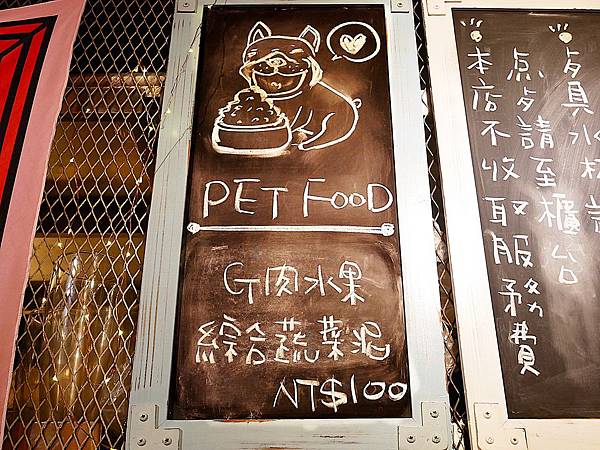 PET FOOD
G肉水果
綜合蔬菜泥
NT$100
食具水杯
点歺請至櫃台
本店不收取服務費